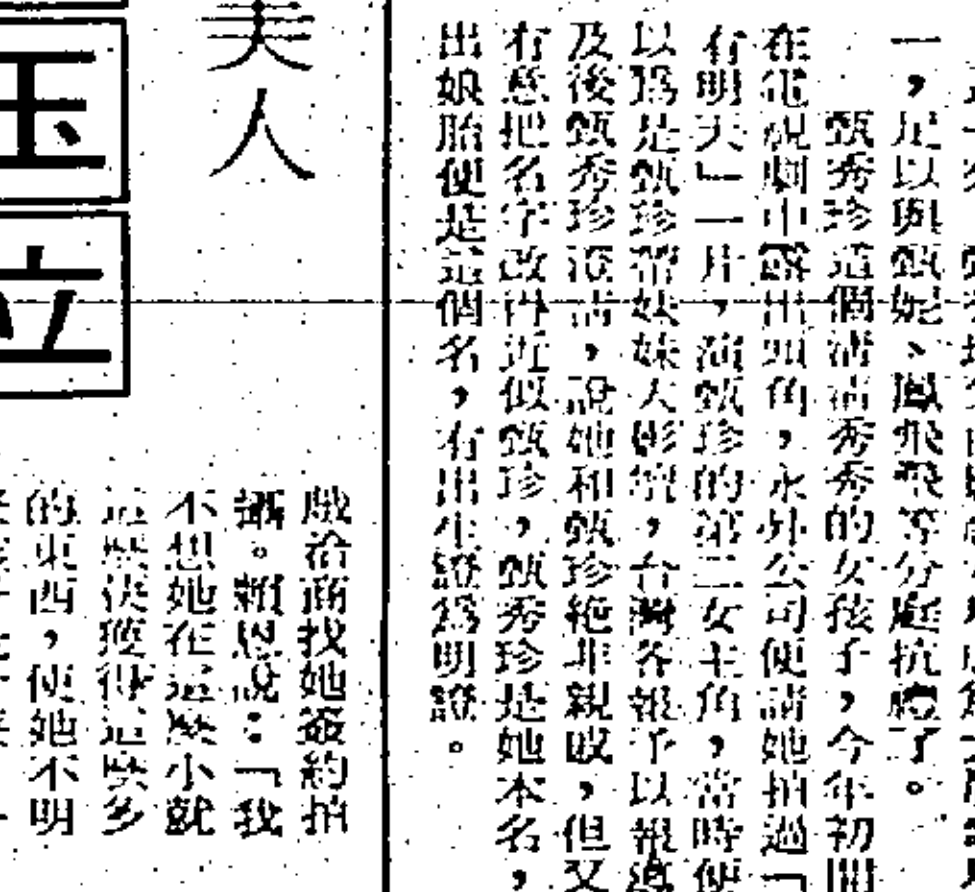 一，足以與甄妮、鳳飛飛等分庭抗禮了。
甄秀珍這個清清秀秀的女孩子，今年初開
在電視劇中露出頭角，永外公司便請她拍過「
有明天」一片，演甄珍的第二女主角，當時便
以爲是甄珍帶妹妹大影壇，台灣各報予以報導
及後甄秀珍澄清，說她和甄珍絶非親戚，但又
有意把名字改得近似甄珍，甄秀珍是她本名，
出娘胎便是這個名，有出生證爲明證。
美人
玉
立
戲洽商找她簽約拍
攝。賴恩說：「我
不想她在這麽小就
這麽快獲得這麽多
的東西，使她不明